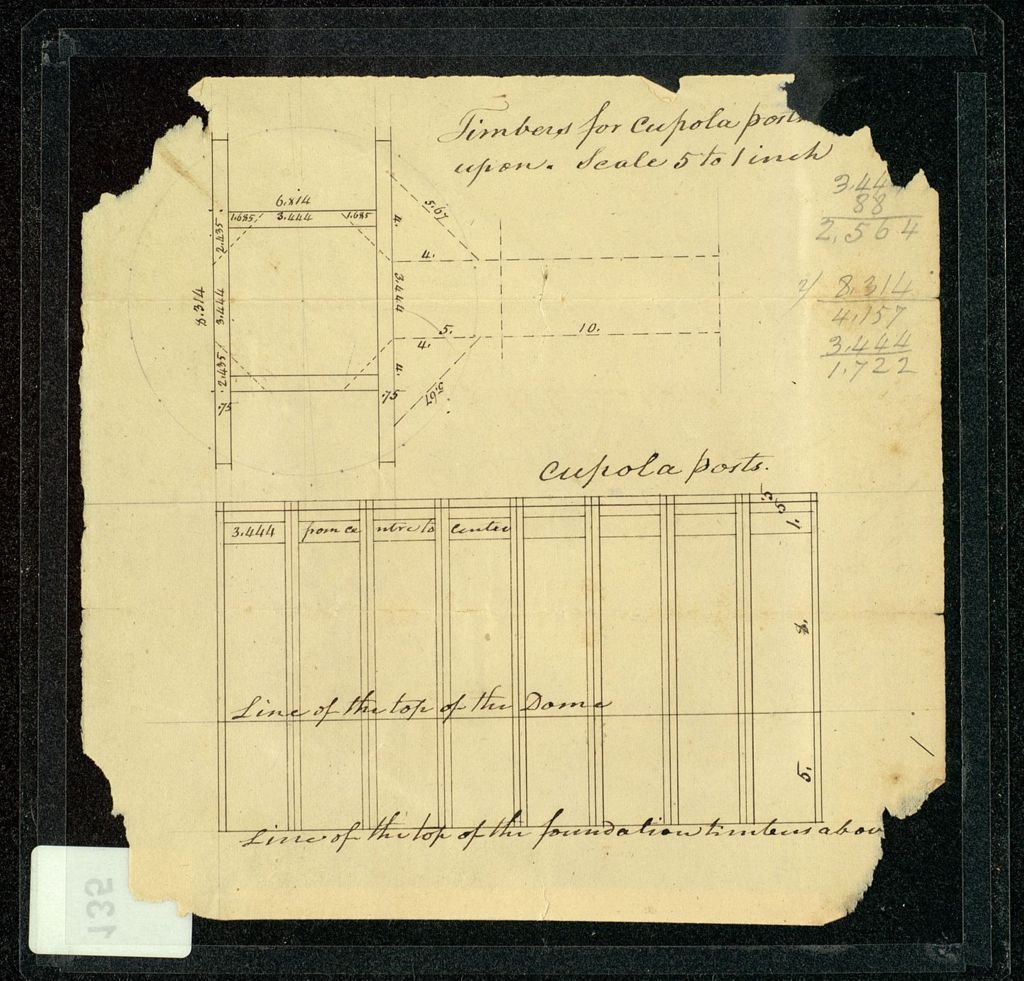 Timbers for cupola posts
upon. Scale 5 to 1 inch
3.44
88
2.564
2/ 8.314
4.157
3.444
1.722
6.814
1.685 3.444 1.685
8.314
2.435
3.444
2.435
.75
4.
3.444
4.
.75
5.67
4.
5.
4.
10.
5.67
cupola posts.
3.444 from ce ntre to center
1.5
8.
Line of the top of the Dome
5.
Line of the top of the foundation timbers above
135